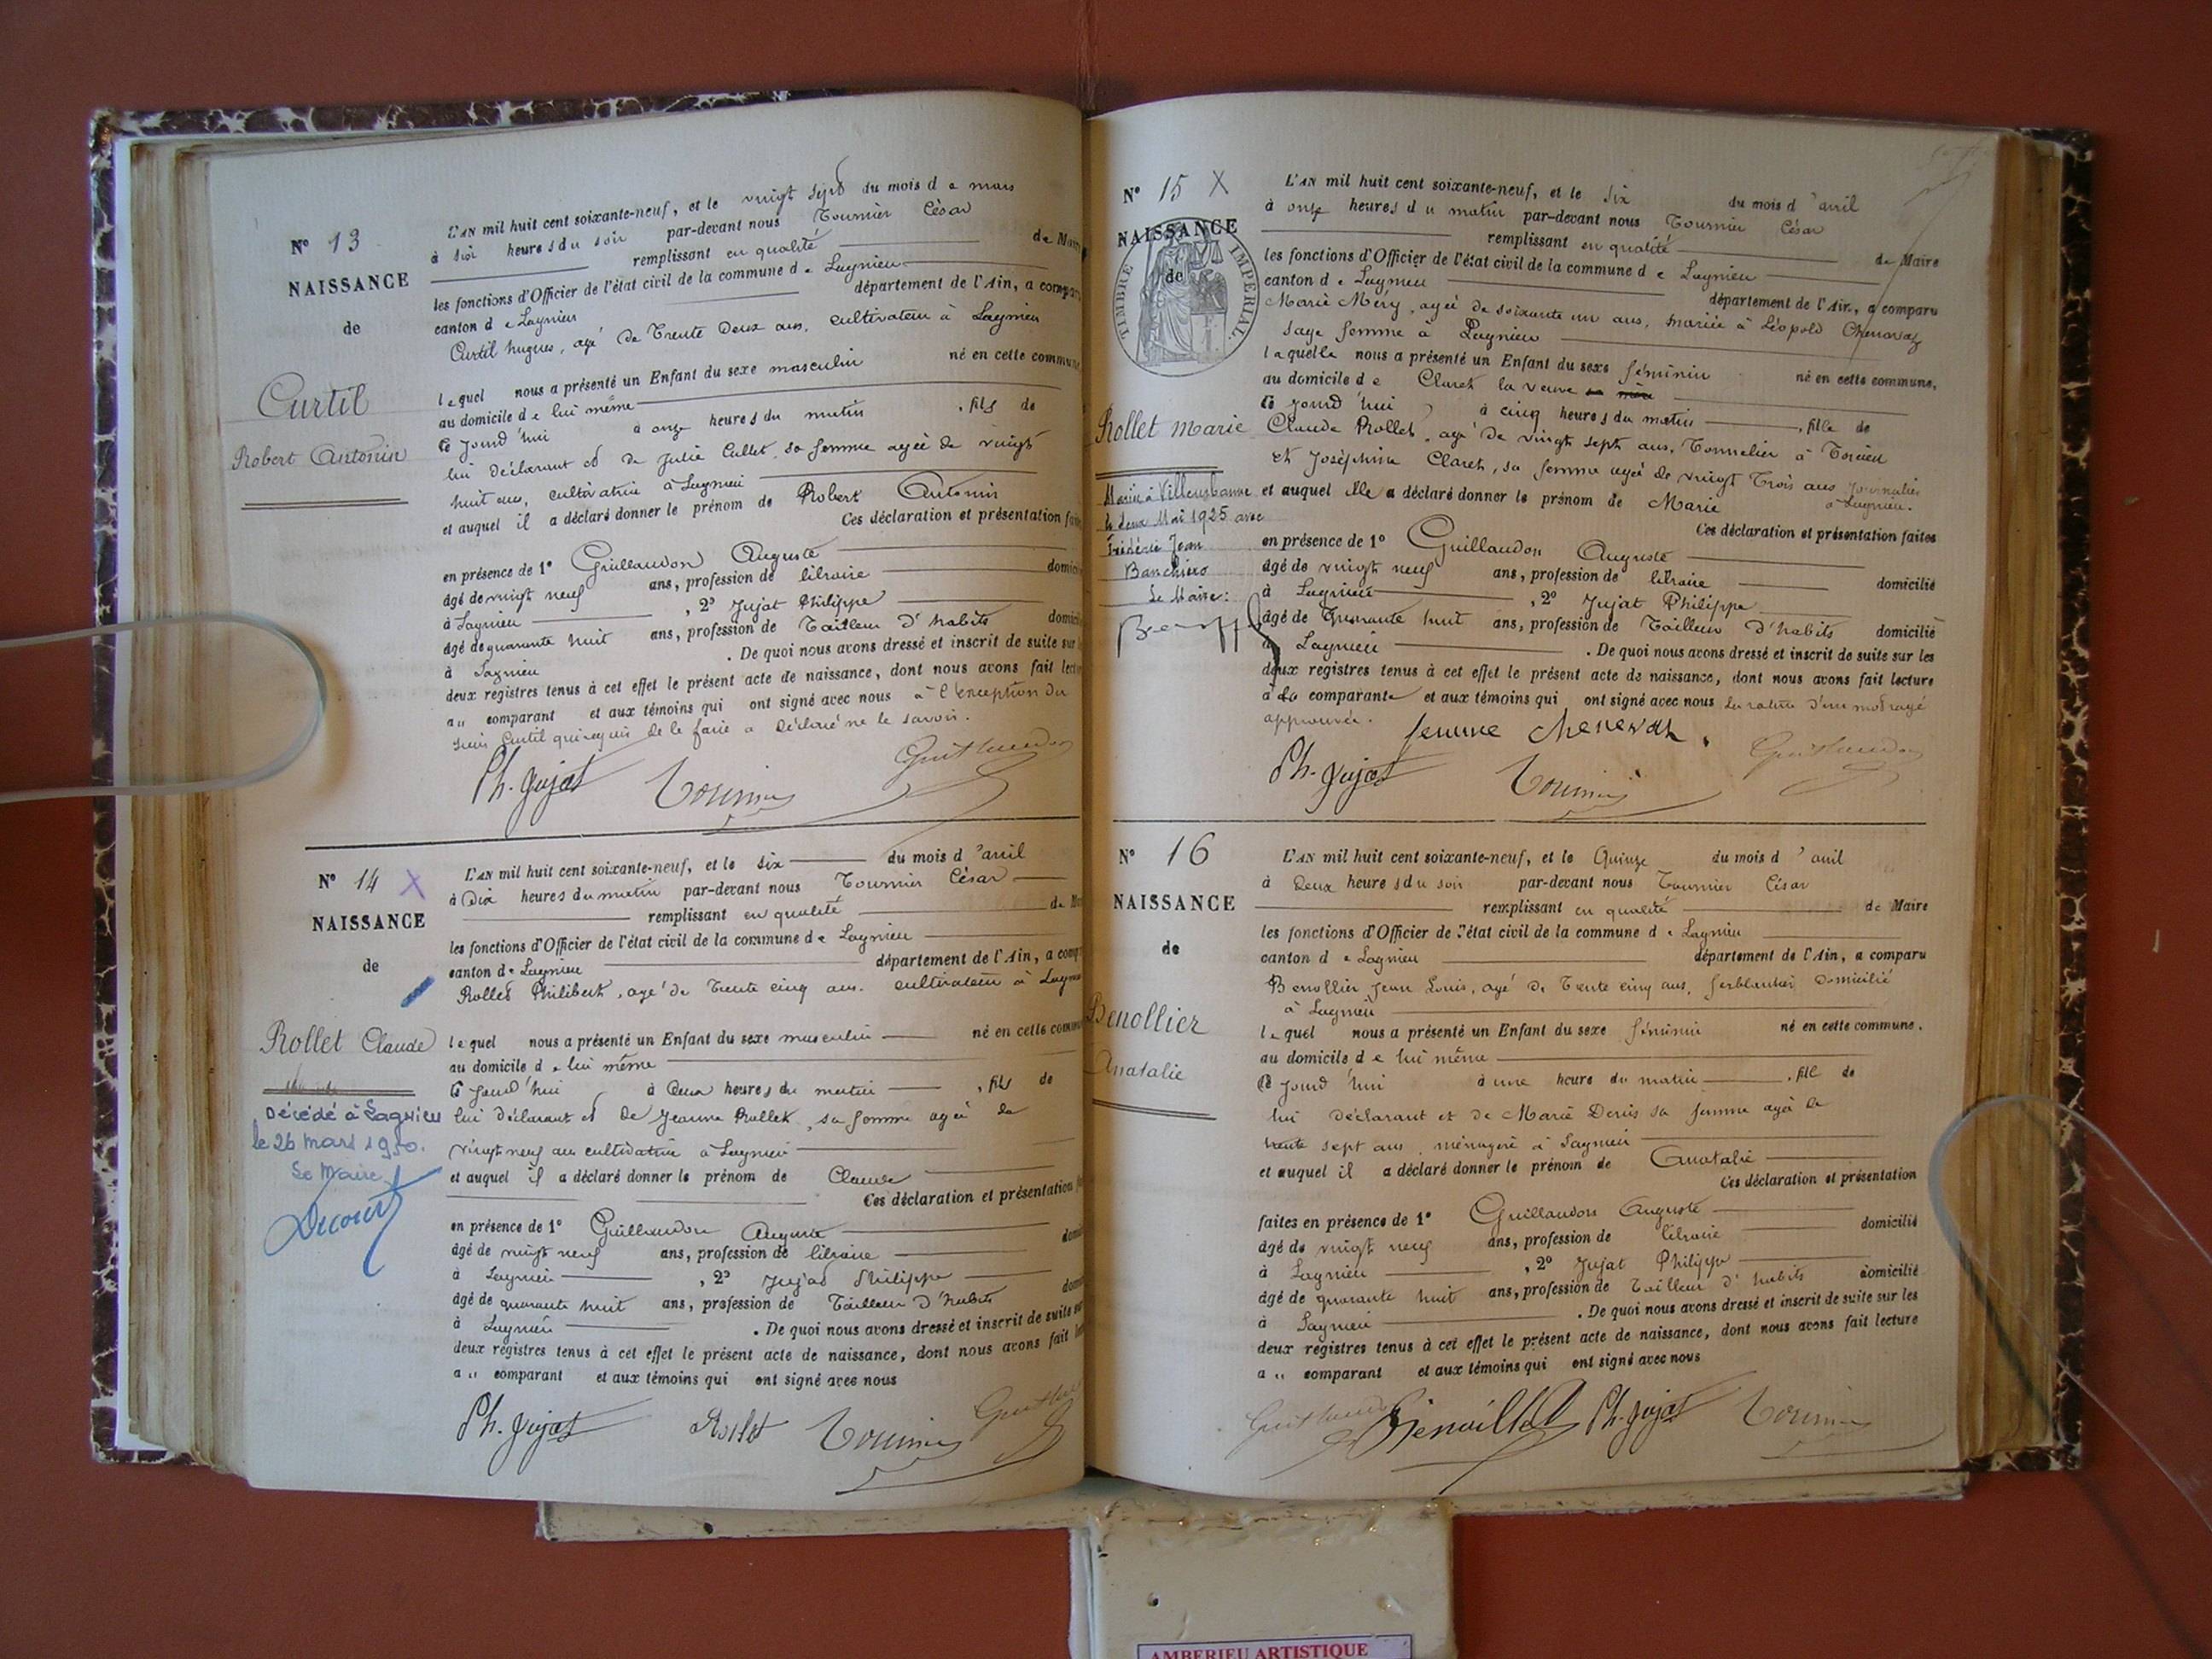 N° 13
NAISSANCE
de
Curtil
Robert Antonin
L'AN mil huit cent soixante-neuf, et le vingt sept du mois de mars
à six heures du soir par-devant nous Tournier César
remplissant en qualité de Maire
les fonctions d'Officier de l'état civil de la commune de Lagnieu
canton de Lagnieu département de l'Ain, a comparu
Curtil hugues, agé de Trente Deux ans, cultivateur à Lagnieu
lequel nous a présenté un Enfant du sexe masculin né en cette commune,
au domicile de lui même
Ce Jourd'hui à onze heures du matin, fils de
lui déclarant et de Julie Cullet, sa femme agée de vingt
huit ans, cultivatrice à Lagnieu
et auquel il a déclaré donner le prénom de Robert Antonin
Ces déclaration et présentation
en présence de 1° Guillaudon Auguste
âgé de vingt neuf ans, profession de libraire
à Lagnieu, 2° Jujat Philippe
âgé de quarante huit ans, profession de Tailleur d'habits
à Lagnieu. De quoi nous avons dressé et inscrit de suite sur
deux registres tenus à cet effet le présent acte de naissance, dont nous avons fait
au comparant et aux témoins qui ont signé avec nous à l'exception du
Curtil qui requis de le faire a déclaré ne le savoir.
Ph. Jujat Tournier Guillaudon
N° 14 X
NAISSANCE
de
Rollet Claude
Décédé à Lagnieu
le 26 mars 1950.
Le Maire
L'AN mil huit cent soixante-neuf, et le six du mois d'avril
à Dix heures du matin par-devant nous Tournier César
remplissant en qualité de
les fonctions d'Officier de l'état civil de la commune de Lagnieu
canton de Lagnieu département de l'Ain, a
Rollet Philibert, agé de Trente cinq ans. cultivateur à Lagnieu
lequel nous a présenté un Enfant du sexe masculin né en cette
au domicile de lui même
Ce Jourd'hui à deux heures du matin, fils de
lui déclarant et de Jeanne Rollet, sa femme agée de
vingt neuf ans cultivatrice à Lagnieu
et auquel il a déclaré donner le prénom de Claude
Ces déclaration et présentation
en présence de 1° Guillaudon Auguste
âgé de vingt neuf ans, profession de libraire
à Lagnieu, 2° Jujat Philippe
âgé de quarante huit ans, profession de Tailleur d'habits
à Lagnieu. De quoi nous avons dressé et inscrit de suite
deux registres tenus à cet effet le présent acte de naissance, dont nous avons fait
au comparant et aux témoins qui ont signé avec nous
Ph. Jujat Rollet Tournier
N° 15 X
NAISSANCE
de
TIMBRE IMPÉRIAL
Rollet Marie
Mariée à Villeurbanne
le deux Mai 1925 avec
Frédéric Jean
Banchiero
Le Maire:
L'AN mil huit cent soixante-neuf, et le six du mois d'avril
à onze heures du matin par-devant nous Tournier César
remplissant en qualité de Maire
les fonctions d'Officier de l'état civil de la commune de Lagnieu
canton de Lagnieu département de l'Ain, a comparu
Marie Méry, agée de soixante un ans, mariée à Léopold Chenavaz
sage femme à Lagnieu
laquelle nous a présenté un Enfant du sexe féminin né en cette commune,
au domicile de Claret la veuve
Ce Jourd'hui à cinq heures du matin, fille de
Claude Rollet, agé de vingt sept ans, Tonnelier à Torcieu
et Joséphine Claret, sa femme agée de vingt Trois ans Journalière
à Lagnieu.
et auquel elle a déclaré donner le prénom de Marie
Ces déclaration et présentation faites
en présence de 1° Guillaudon Auguste
âgé de vingt neuf ans, profession de libraire domicilié
à Lagnieu, 2° Jujat Philippe
âgé de Quarante huit ans, profession de Tailleur d'habits domicilié
à Lagnieu. De quoi nous avons dressé et inscrit de suite sur les
deux registres tenus à cet effet le présent acte de naissance, dont nous avons fait lecture
à la comparante et aux témoins qui ont signé avec nous La rature d'un mot rayé
approuvée.
femme Chenavaz
Ph. Jujat Tournier Guillaudon
N° 16
NAISSANCE
de
Benollier
Anatalie
L'AN mil huit cent soixante-neuf, et le Quinze du mois d'avril
à Deux heures du soir par-devant nous Tournier César
remplissant en qualité de Maire
les fonctions d'Officier de l'état civil de la commune de Lagnieu
canton de Lagnieu département de l'Ain, a comparu
Benollier Jean Louis, agé de Trente cinq ans, ferblantier domicilié
à Lagnieu
lequel nous a présenté un Enfant du sexe féminin né en cette commune.
au domicile de lui même
Ce Jourd'hui à une heure du matin, fille de
lui déclarant et de Marie Denis sa femme agée de
trente sept ans, ménagère à Lagnieu
et auquel il a déclaré donner le prénom de Anatalie
Ces déclaration et présentation
faites en présence de 1° Guillaudon Auguste
âgé de vingt neuf ans, profession de libraire domicilié
à Lagnieu, 2° Jujat Philippe
âgé de quarante huit ans, profession de Tailleur d'habits domicilié
à Lagnieu. De quoi nous avons dressé et inscrit de suite sur les
deux registres tenus à cet effet le présent acte de naissance, dont nous avons fait lecture
au comparant et aux témoins qui ont signé avec nous
Guillaudon Ph. Jujat Tournier
AMBERIEU ARTISTIQUE